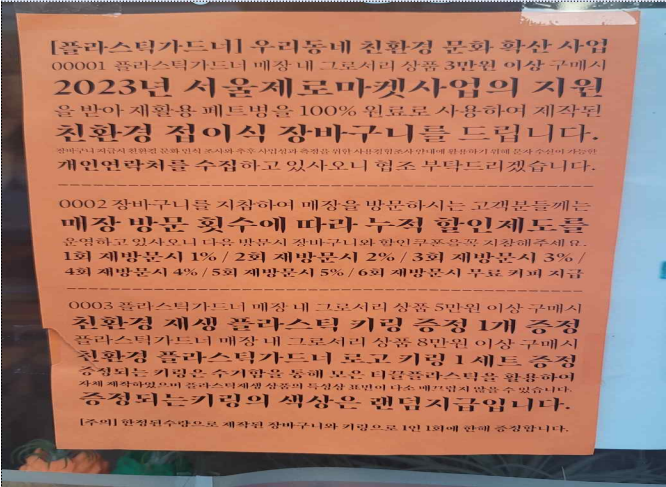 [플라스틱가드너] 우리동네 친환경 문화 확산 사업
00001 플라스틱가드너 매장 내 그로서리 상품 3만원 이상 구매시
2023년 서울제로마켓사업의 지원
을 받아 재활용 페트병을 100% 원료로 사용하여 제작된
친환경 접이식 장바구니를 드립니다.
장바구니 지급시 친환경 문화 인식 조사와 추후 사업성과 측정을 위한 사용경험조사 안내에 활용하기 위해 문자 수신이 가능한
개인연락처를 수집하고 있사오니 협조 부탁드리겠습니다.
0002 장바구니를 지참하여 매장을 방문하시는 고객분들께는
매장 방문 횟수에 따라 누적 할인제도를
운영하고 있사오니 다음 방문시 장바구니와 할인쿠폰을꼭 지참해주세요.
1회 재방문시 1% / 2회 재방문시 2% / 3회 재방문시 3% /
4회 재방문시 4% / 5회 재방문시 5% / 6회 재방문시 무료 커피 지급
0003 플라스틱가드너 매장 내 그로서리 상품 5만원 이상 구매시
친환경 재생 플라스틱 키링 증정 1개 증정
플라스틱가드너 매장 내 그로서리 상품 8만원 이상 구매시
친환경 플라스틱가드너 로고 키링 1 세트 증정
증정되는 키링은 수거함을 통해 모은 티끌플라스틱을 활용하여
자체 제작하였으며 플라스틱재생 상품의 특성상 표면이 다소 매끄럽지 않을 수 있습니다.
증정되는키링의 색상은 랜덤지급입니다.
[주의] 한정된수량으로 제작된 장바구니와 키링으로 1인 1회에 한해 증정합니다.